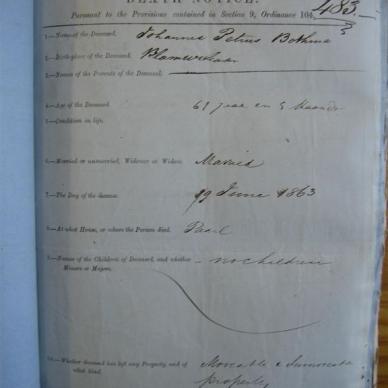 DEATH NOTICE.
Pursuant to the Provisions contained in Section 9, Ordinance 104,
483.
1.—Name of the Deceased. Johannes Petrus Bothma
2.—Birthplace of the Deceased.
3.—Names of the Parents of the Deceased.
4.—Age of the Deceased 61 jaar en 5 Maanden
5.—Condition in life.
6.—Married or unmarried, Widower or Widow. Married
7.—The Day of the decease. 19 June 1863
8.—At what House, or where the Person died. Paarl
9.—Names of the Children of Deceased, and whether
Minors or Majors. - no children
10.—Whether deceased has left any Property, and of
what kind. Moveable & Immoveable
property